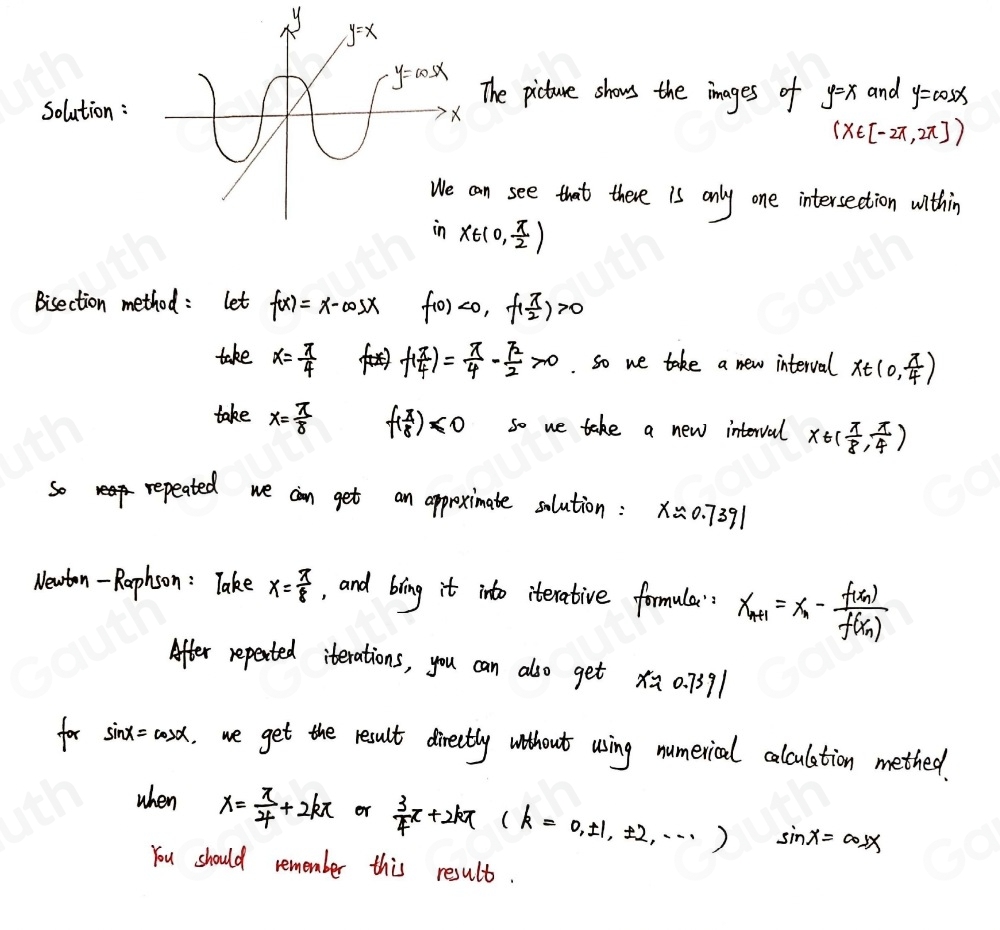 y
y=x
y=cosx
x
Solution: The picture shows the images of y=x and y=cosx
(x∈[-2π,2π])
We can see that there is only one intersection within
in x∈(0,π/2)
Bisection method: let f(x)=x-cosx f(0)<0, f(π/2)>0
take x=π/4 f(π/4)=π/4-√2/2>0. so we take a new interval x∈(0,π/4)
take x=π/8 f(π/8)<0 so we take a new interval x∈(π/8,π/4)
So repeated we can get an approximate solution: x≈0.7391
Newton-Raphson: Take x=π/8, and bring it into iterative formula: xₙ₊₁=xₙ-f(xₙ)/f'(xₙ)
After repeated iterations, you can also get x≈0.7391
for sinx=cosx, we get the result directly without using numerical calculation method.
when x=π/4+2kπ or 3/4π+2kπ (k=0,±1,±2,···) sinx=cosx
You should remember this result.
Gauth